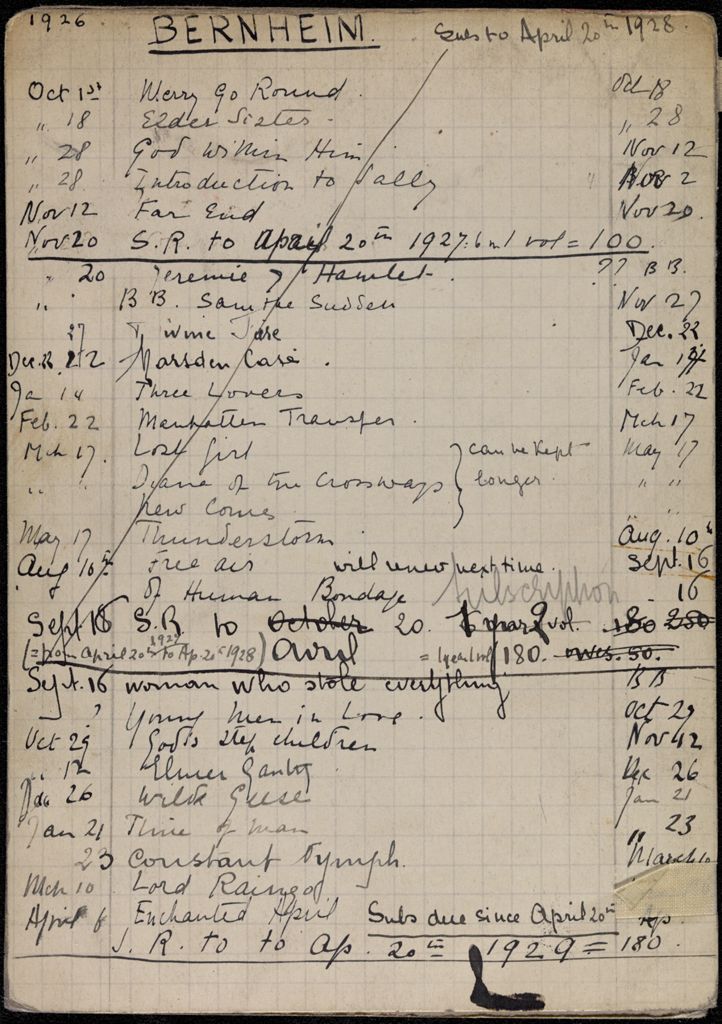 1926 BERNHEIM. Subs to April 20th 1928.
Oct 1st Merry Go Round. Oct 18
" 18 Elder Sister. " 28
" 28 God Within Him Nov 12
" 28 Introduction to Sally " Nov 2
Nov 12 Far End Nov 20.
Nov 20 S.R. to April 20th 1927. 6 m 1 vol = 100.
" 20 Jeremie & Hamlet. ?? BB.
" " BB. Sam the Sudden Nov 27
27 Dec. 22
Dec. 22 Marsden Case. Jan 14
Ja 14 Three Lovers Feb. 22
Feb. 22 Manhatten Transfer. Mch 17
Mch 17. Lost Girl } can be kept May 17
" " Diana of the Crossways } longer " "
New Comes " "
May 17 Thunderstorm Aug. 10th
Aug 10th Free air will renew next time. Sept. 16
Of Human Bondage subscription 16
Sept 16 S.R. to October 20. 1 year 2 vol. 180 250
(= from April 20th 1927 to Ap. 20th 1928) April = 1 year 1 vol 180. owes. 50.
Sept. 16 woman who stole everything BB
" Young Men in Love. Oct 29
Oct 29 God's Step children Nov 12
" 12 Elmer Gantry Dec 26
Dec 26 Wild Geese Jan 21
Jan 21 Thine of man " 23
23 Constant Nymph. March 10
Mch 10 Lord Raingo
April 6 Enchanted April Subs due since April 20th Ap.
S.R. to to Ap. 20th 1929 = 180.